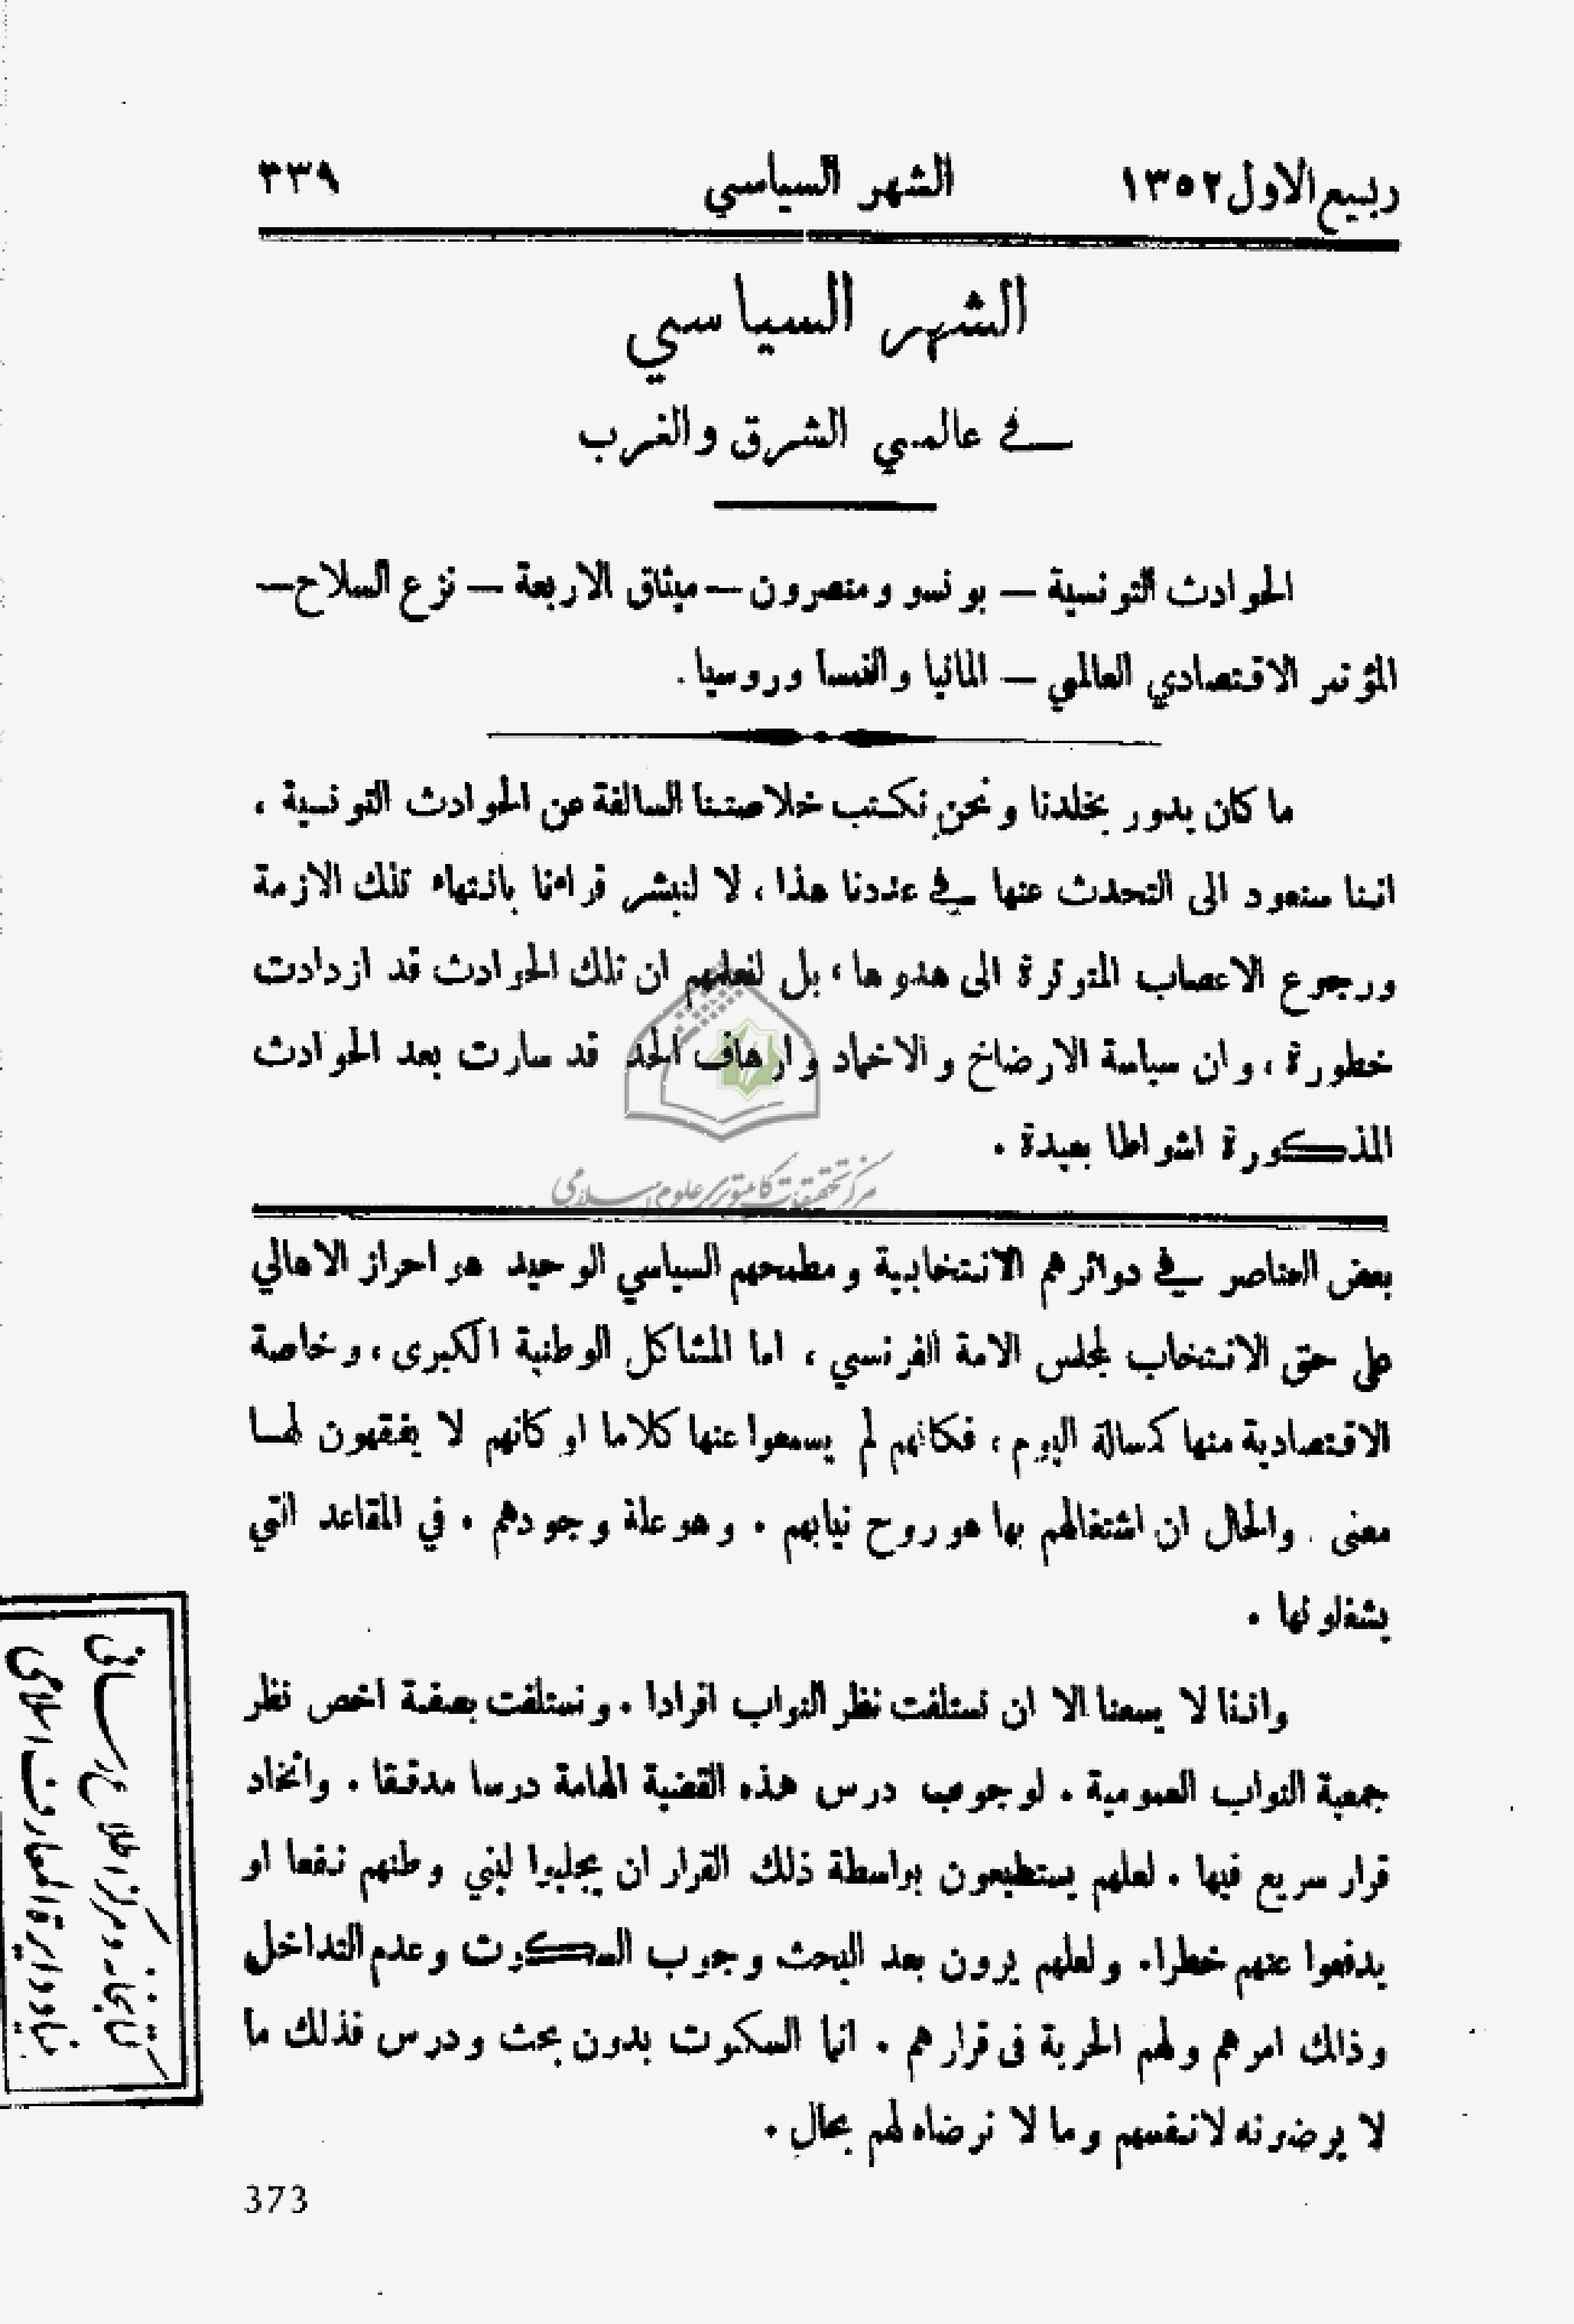 ربيع الاول ١٣٥٢ الشهر السياسي ٣٣٩
الشهر السياسي
في عالمي الشرق والغرب
الحوادث التونسية — بونسو ومنصرون — ميثاق الاربعة — نزع السلاح —
المؤتمر الاقتصادي العالمي — المانيا والنمسا وروسيا .
ما كان يدور بخلدنا ونحن نكتب خلاصتنا السالفة عن الحوادث التونسية ،
اننا سنعود الى التحدث عنها في عددنا هذا ، لا لنبشر قراءنا بانتهاء تلك الازمة
ورجوع الاعصاب المتوترة الى هدوها ، بل لنعلمهم ان تلك الحوادث قد ازدادت
خطورة ، وان سياسة الارضاخ والاخماد وارهاف الحد قد سارت بعد الحوادث
المذكورة اشواطا بعيدة .
مركز تحقيقات كامپيوتري علوم اسلامي
بعض العناصر في دوائرهم الانتخابية ومطمحهم السياسي الوحيد هو احراز الاهالي
على حق الانتخاب لمجلس الامة الفرنسي ، اما المشاكل الوطنية الكبرى ، وخاصة
الاقتصادية منها كمسالة اليوم ، فكانهم لم يسمعوا عنها كلاما او كانهم لا يفقهون لها
معنى . والحال ان اشتغالهم بها هو روح نيابهم . وهو علة وجودهم . في المقاعد التي
يشغلونها .
واننا لا يسعنا الا ان نستلفت نظر النواب افرادا . ونستلفت بصفة اخص نظر
جمعية النواب العمومية . لوجوب درس هذه القضية الهامة درسا مدققا . واتخاد
قرار سريع فيها . لعلهم يستطيعون بواسطة ذلك القرار ان يجلبوا لبني وطنهم نفعا او
يدفعوا عنهم خطرا . ولعلهم يرون بعد البحث وجوب السكوت وعدم التداخل
وذالك امرهم ولهم الحرية فى قرارهم . انما السكوت بدون بحث ودرس فذلك ما
لا يرضونه لانفسهم وما لا نرضاه لهم بحال .
373